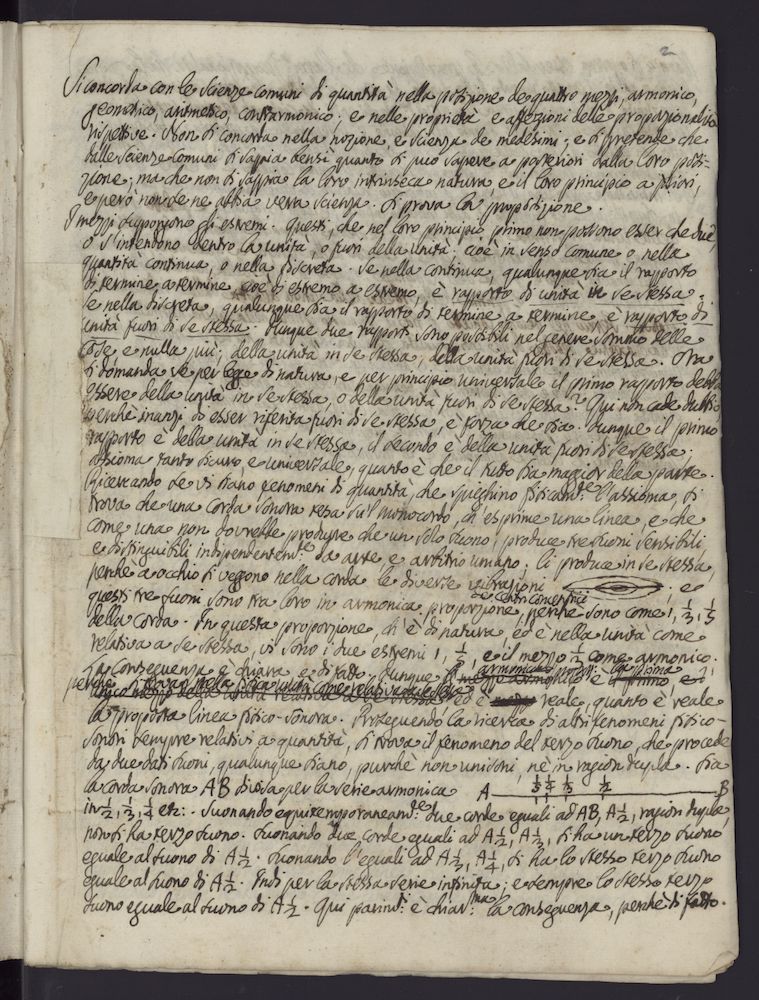 2
Si concorda con le scienze comuni di quantità nella posizione de quattro mezzi, armonico,
geometrico, aritmetico, contrarmonico; e nelle proprietà e affezioni delle proporzionalità
rispettive. Non si concorda nella nozione, e scienza de medesimi; e si pretende che
dalle scienze comuni si sappia bensì quanto si può sapere a posteriori dalla loro posi-
zione; ma che non si sappia la loro intrinseca natura, e il loro principio a priori,
e però non se ne abbia vera scienza. Si prova la proposizione.
I mezzi suppongono gli estremi. Questi, che nel loro principio primo non possono esser che due,
o s'intendono dentro la unità, o fuori della unità: cioè in senso comune o nella
quantità continua, o nella discreta. Se nella continua, qualunque sia il rapporto
di termine a termine, cioè di estremo a estremo, è rapporto di unità in se stessa.
Se nella discreta, qualunque sia il rapporto di termine a termine, è rapporto di
unità fuori di se stessa. Dunque due rapporti sono possibili nel genere sommo delle
cose e nulla più; della unità in se stessa, della unità fuori di se stessa. Ora
si domanda se per legge di natura, e per principio universale il primo rapporto debba
essere della unità in se stessa, o della unità fuori di se stessa? Qui non cade dubbio
perchè inanzi di esser riferita fuori di se stessa, è forza che sia. Dunque il primo
rapporto è della unità in se stessa, il secondo è della unità fuori di se stessa;
assioma tanto sicuro, e universale, quanto è che il tutto sia maggior della parte.
Ricercando se vi siano fenomeni di quantità, che spieghino fisicam.te l'assioma, si
trova che una corda sonora tesa su'l monocordo, ch'esprime una linea, e che
come una non dovrebbe produrre che un solo suono, produce tre suoni sensibili
e distinguibili independentem.te da arte e arbitrio umano; li produce in se stessa,
perchè a occhio si veggono nella corda le diverse vibrazioni , e
concentrici
questi tre suoni sono tra loro in armonica proporzione, perchè sono come 1, 1/3, 1/5
della corda. In questa proporzione, ch'è di natura, ed è nella unità come
relativa a se stessa, vi sono i due estremi 1, 1/5, e il mezzo 1/3 come armonico.
La conseguenza è chiara, e di fatto. Dunque il
perchè ed è reale, quanto è reale
la proposta linea fisico-sonora. Proseguendo la ricerca di altri fenomeni fisico-
sonori sempre relativi a quantità, si trova il fenomeno del terzo suono, che procede
da due dati suoni, qualunque siano, purchè non unisoni, nè in ragion dupla. Sia
la corda sonora AB divisa per la serie armonica A 1/5 1/4 1/3 1/2 B
in 1/2, 1/3, 1/4 etc:. Suonando equitemporaneam.te due corde eguali ad AB, A 1/2, ragion dupla,
non si ha terzo suono. Suonando due corde eguali ad A 1/2, A 1/3, si ha un terzo suono
eguale al suono di A 1/2. Suonando l'eguali ad A 1/3, A 1/4, si ha lo stesso terzo suono
eguale al suono di A 1/2. Indi per la stessa serie infinita; e sempre lo stesso terzo
suono eguale al suono di A 1/2. Qui parim.ti è chiar.ma la conseguenza, perchè di fatto.